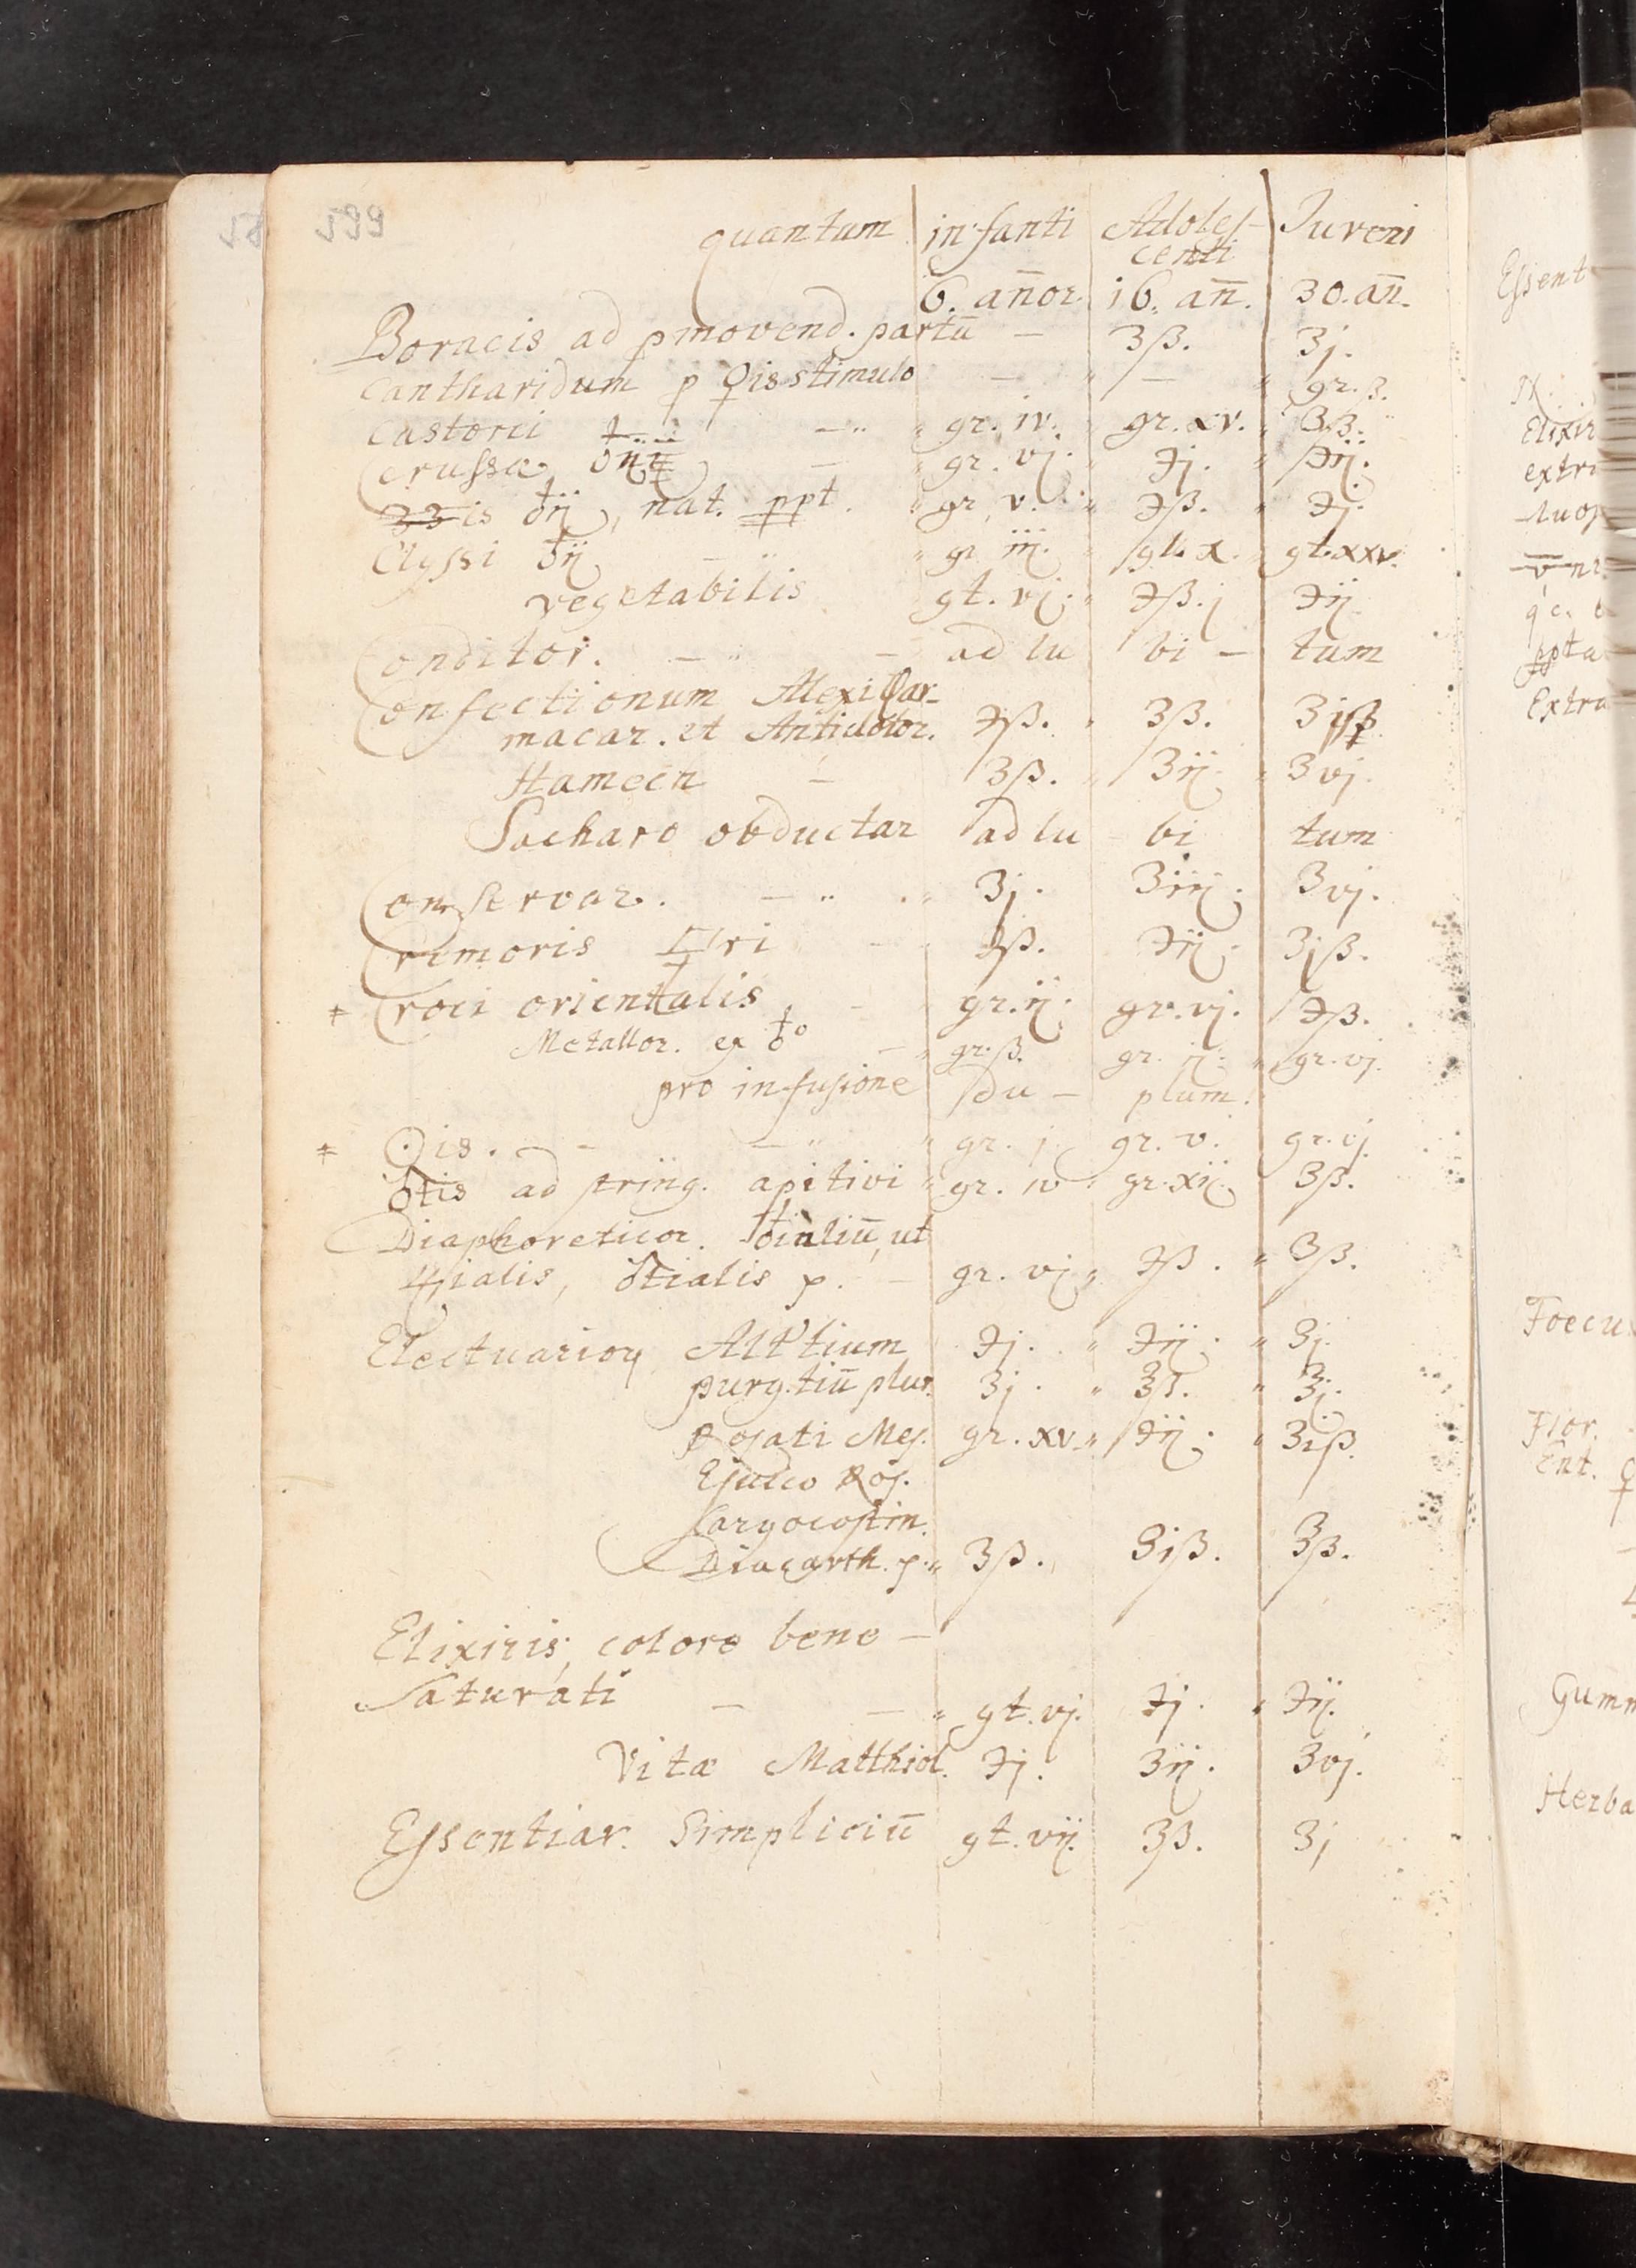 599
quantum infanti Adoles- Iuveni
centi
6. añor. 16. añ. 30. añ.
Boracis ad pmovend. partū — ʒß. ʒj.
Cantharidum p ♀is stimulo — — gr. ß.
Castorii — gr. iv. gr. xv. ʒß.
Cerussæ ♁ij — gr. vj. ℈j. ℈ij.
is ♁ij, nat. ppt. gr. v. ℈ß. ℈j.
Clyssi ♁ij — gr iij. gt. x. gt. xxv.
vegetabilis gt. vj. ℈ß.j ℈ij
Conditor. — ad lu bi — tum
Confectionum Alexiphar-
macar. et Antidotor. ℈ß. ʒß. ʒjß
Hamech — ʒß. ʒij. ʒvj.
Sacharo obductar ad lu bi tum
Conservar. — ʒj. ʒiij. ʒvj.
Cremoris ri ℈ß. ℈ij. ʒjß.
Croci orientalis — gr. ij. gr. vj. ℈ß.
Metallor. ex ♁o — gr. ß. gr. ij. gr. vj.
pro infusione du — plum.
☉is. — — gr. j. gr. v. gr. vj
♂tis ad string. apitivi gr. iv gr. xij. ʒß.
Diaphoreticor. ♁ialiū, ut
♃ialis, ♂tialis p. — gr. vj ℈ß. ʒß.
Electuarior Altium ℈j. ℈ij. ʒj.
purg.tiū plur. ʒj. ʒß. ʒj.
Rosati Mes. gr. xv ℈ij. ʒiß.
E succo Ros.
Caryocostin.
Diacarth. p. ʒß. ʒiß. ʒß.
Elixiris, colore bene —
Saturati — — gt. vj. ℈j. ℈ij.
Vitæ Matthiol. ℈j. ʒij. ʒvj.
Essentiar. Simpliciū gt. vij. ʒß. ʒj
Essent
Elixir
Extra
Foecu
Flor.
Ent. ♀
Gumm
Herba